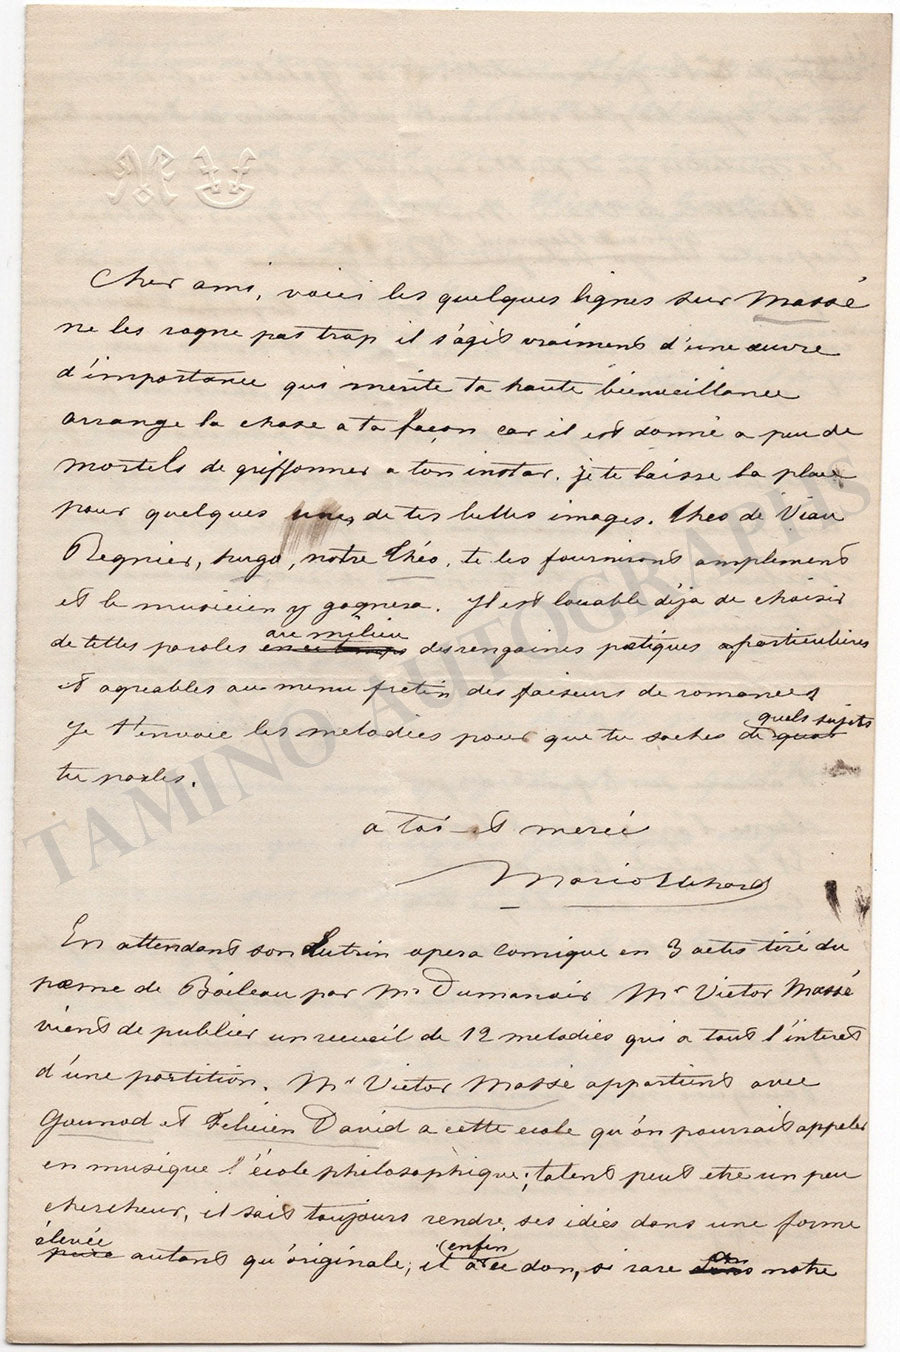 Cher ami, voici les quelques lignes sur Massé
ne les rogne pas trop il s'agit vraiment d'une œuvre
d'importance qui mérite ta haute bienveillance
arrange la chose a ta façon car il est donné a peu de
mortels de griffonner a ton instar. je te laisse la place
pour quelques unes de tes belles images. Theo de Viau
Regnier, hugo, notre Théo, te les fourniront amplement
et le musicien y gagnera. Il est louable déja de choisir
de telles paroles au milieu en ce temps des rengaines poetiques particulieres
et agreables au menu fretin des faiseurs de romances
je t'envoie les melodies pour que tu saches de quels sujets quoi
tu parles.
a toi et merci
Mario Uchard
En attendant son Lutrin opera comique en 3 actes tiré du
poeme de Boileau par Mr Dumanoir Mr Victor Massé
vient de publier un recueil de 12 melodies qui a tout l'interet
d'une partition. Mr Victor Massé appartient avec
Gounod et Félicien David a cette ecole qu'on pourrait appeler
en musique l'école philosophique; talent peut etre un peu
chercheur, il sait toujours rendre ses idées dans une forme
élevée pure autant qu'originale; il a enfin ce don, si rare en dans notre
TAMINO AUTOGRAPHS